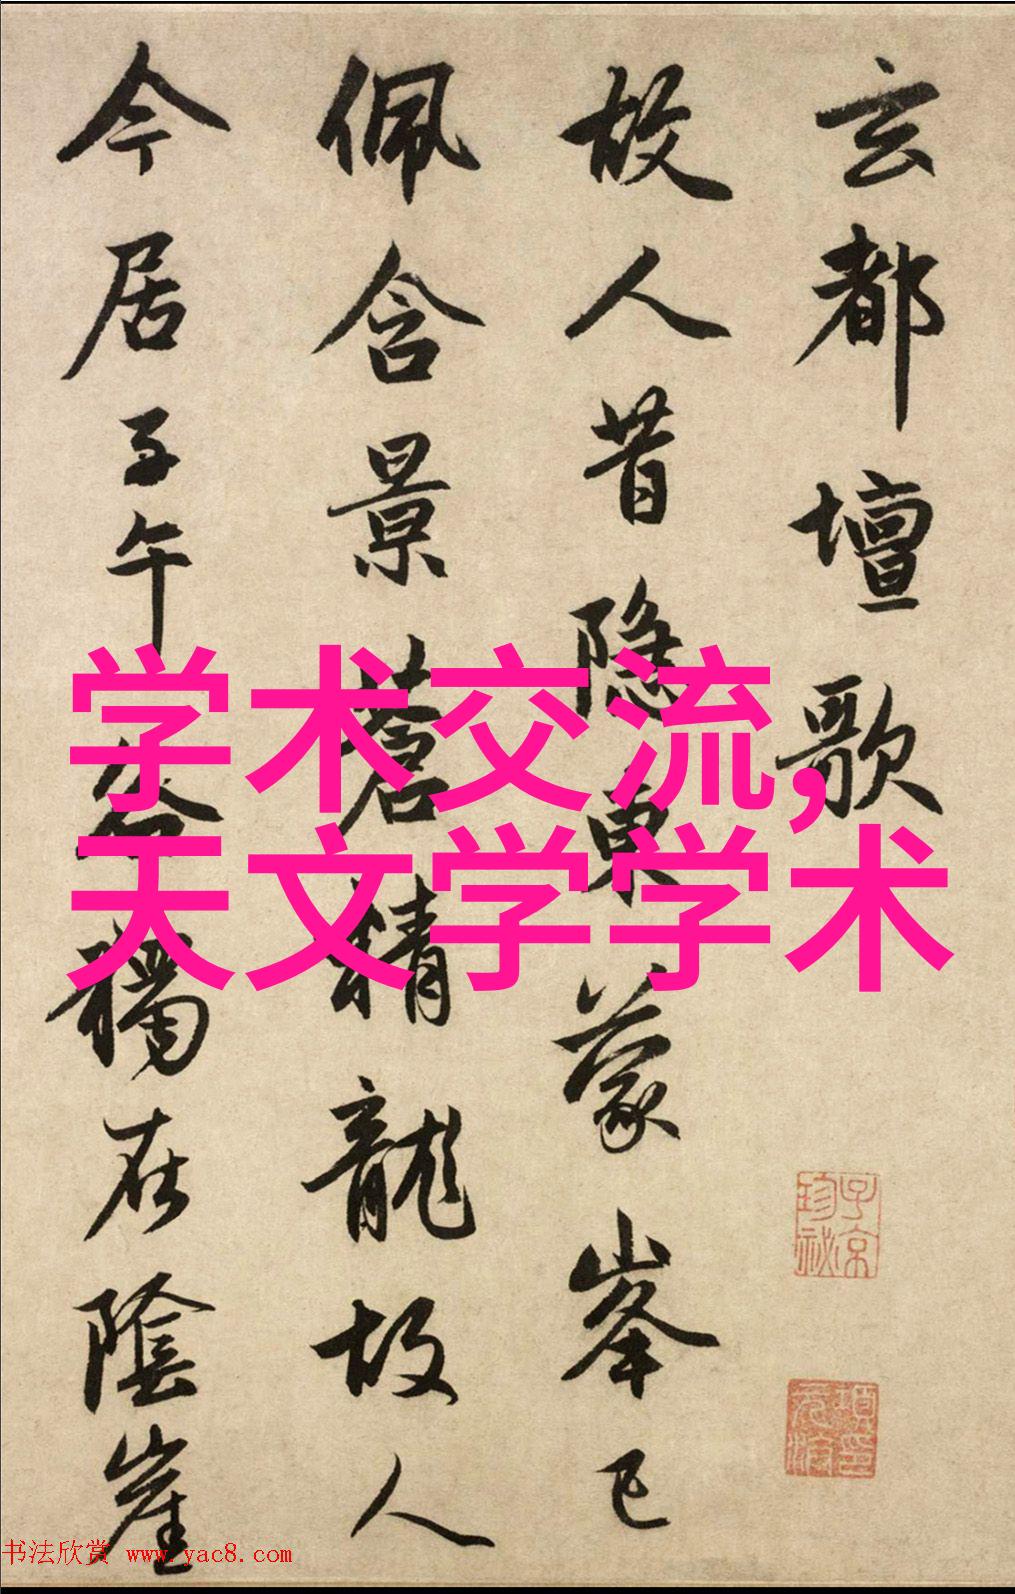 玄都壇歌
故人昔隐東蒙峯已
佩含景蒼精龍故人
今居子午谷獨在陰崖
学术交流，
天文学学术
子京
珍祕
项元汴印
书法欣赏 www.yac8.com